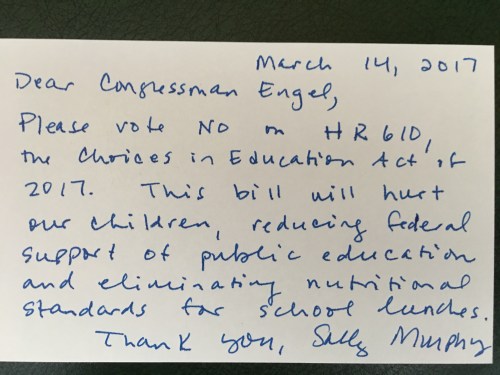 March 14, 2017
Dear Congressman Engel,
Please vote NO on HR 610,
the Choices in Education Act of
2017. This bill will hurt
our children, reducing federal
support of public education
and eliminating nutritional
standards for school lunches.
Thank you, Sally Murphy